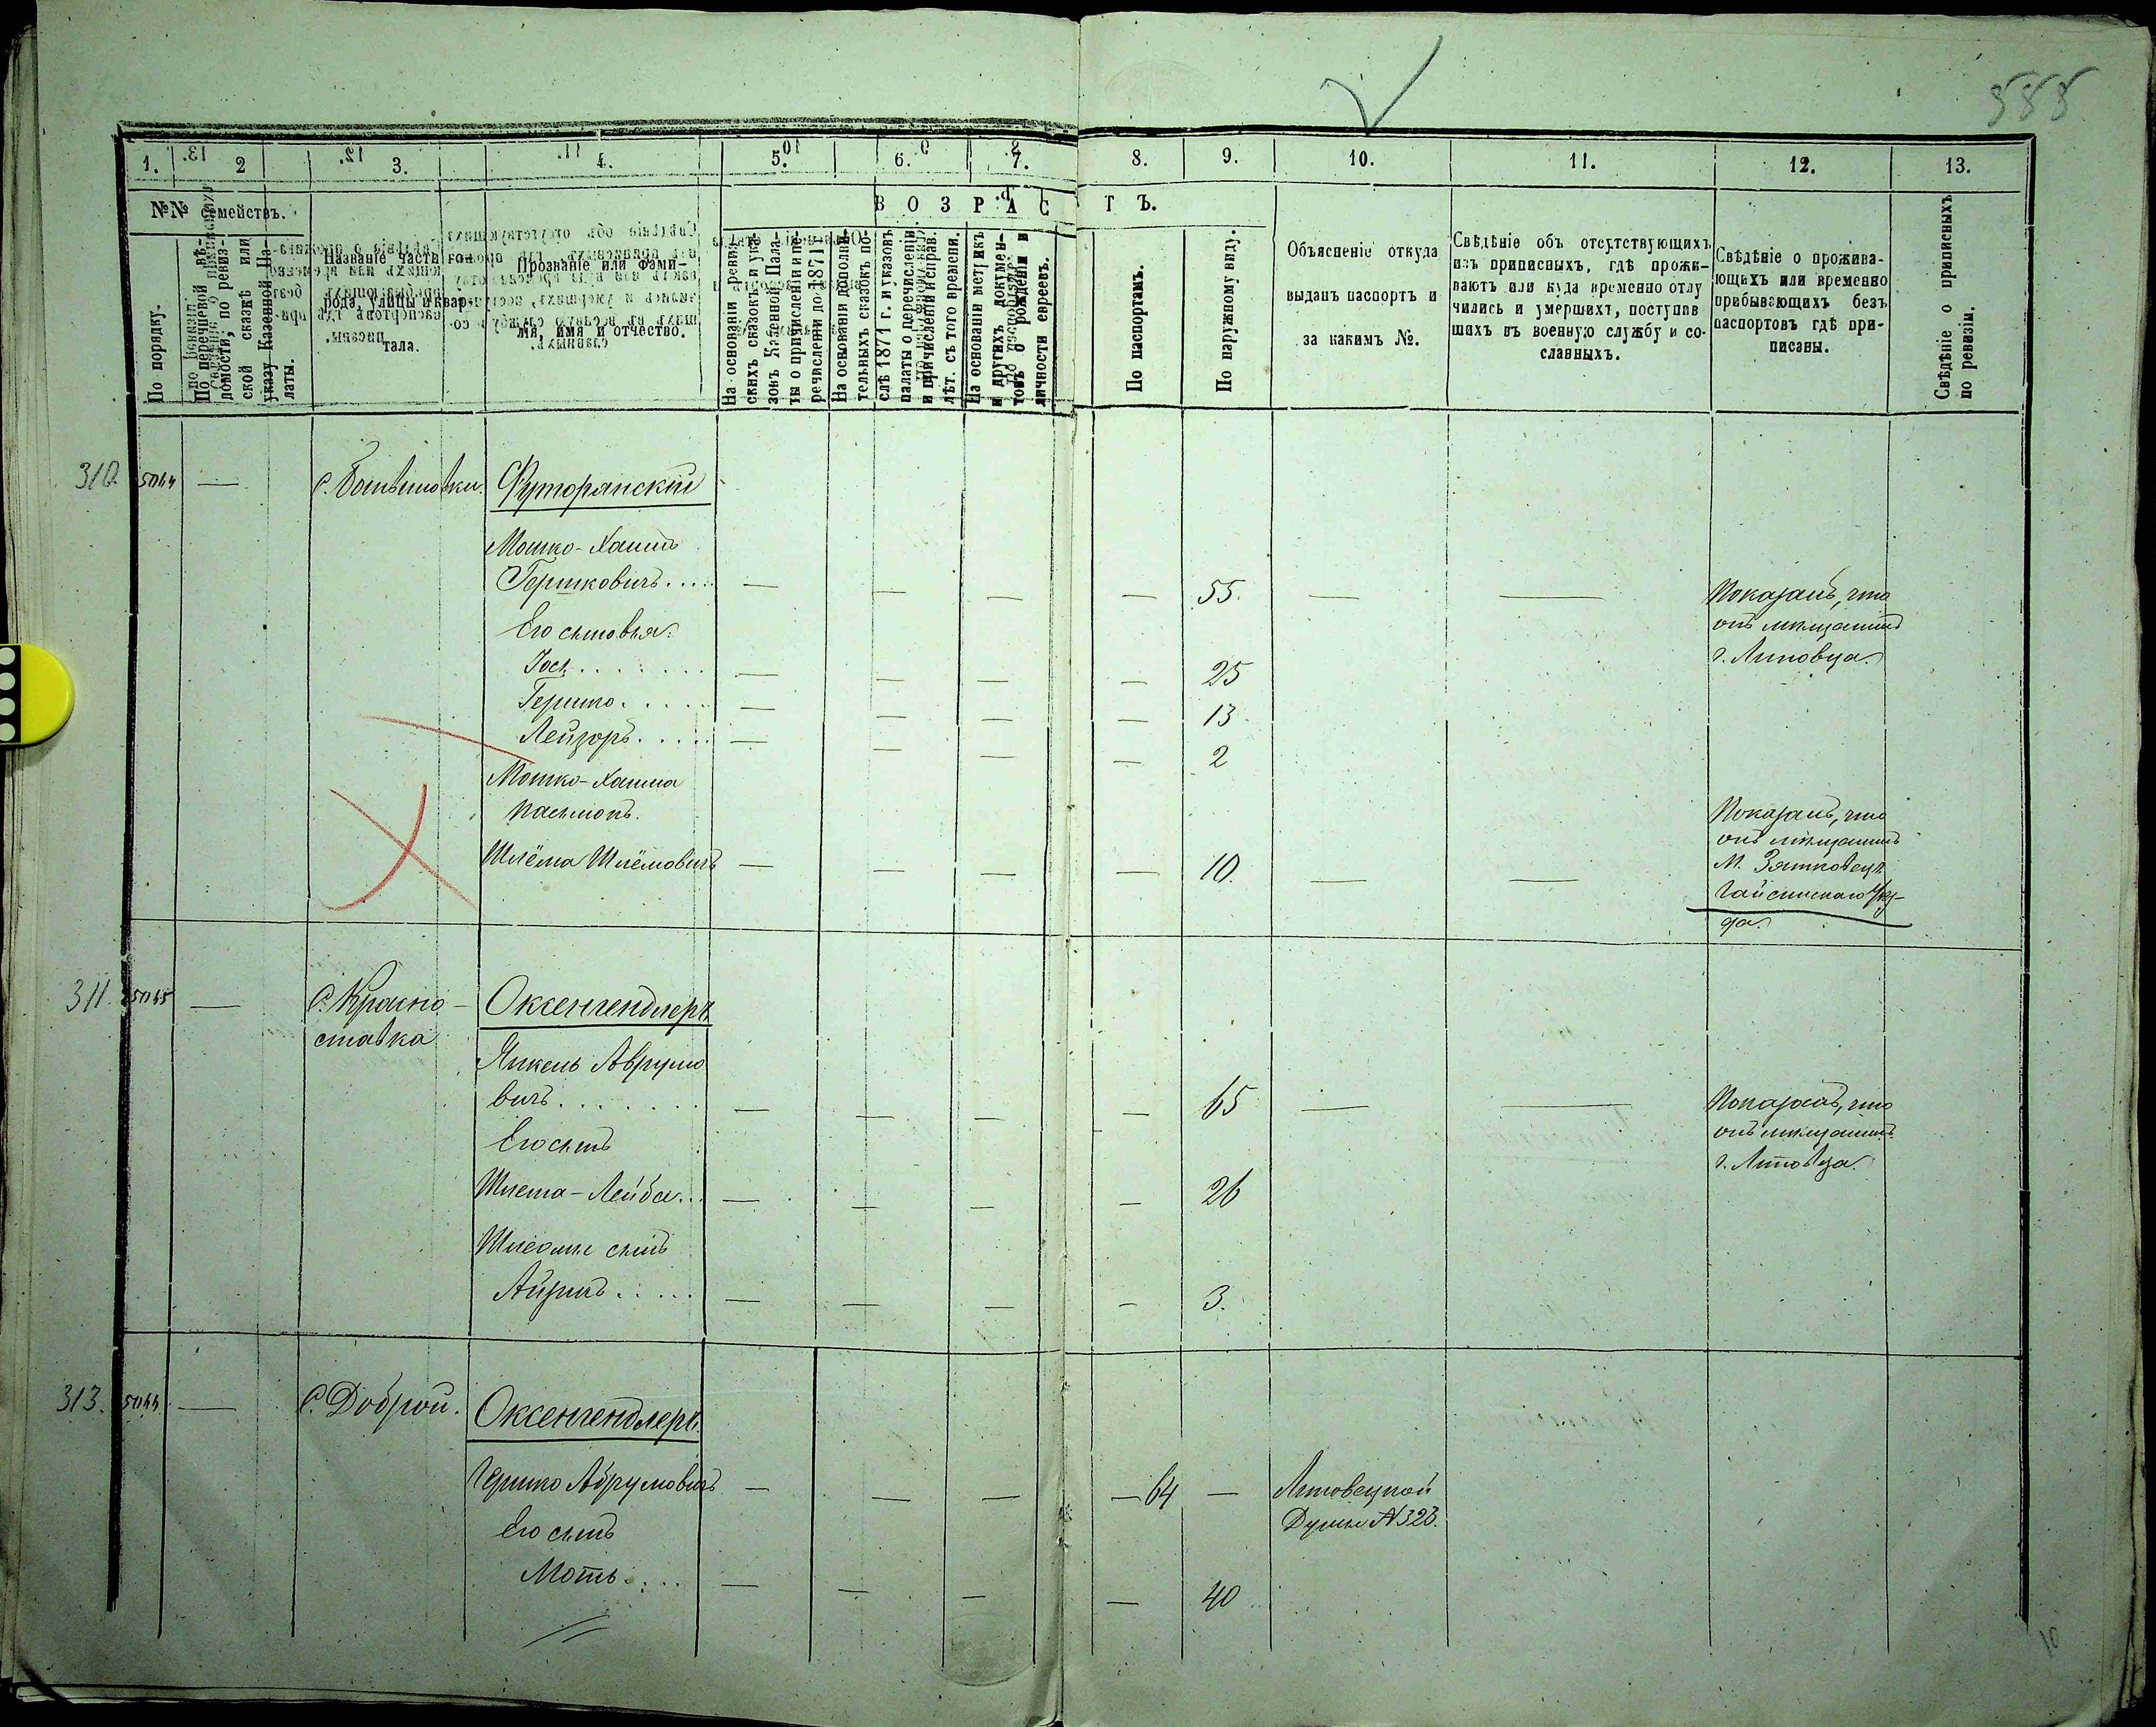 585
1. 2 3. 4. 5. 6. 7. 8. 9. 10. 11. 12. 13.
№№ семействъ.
ВОЗРАСТЪ.
По порядку.
По перечневой вѣ-
домости, по ревиз-
ской сказкѣ или
указу Казенной Па-
латы.
Названіе части го-
рода, улицы и квар-
тала.
Прозваніе или фами-
лія, имя и отчество.
На основаніи ревиз-
скихъ сказокъ и ука-
зовъ Казенной Пала-
ты о причисленіи и пе-
речисленіи до 1871 г.
На основаніи дополни-
тельныхъ сказокъ по-
слѣ 1871 г. и указовъ
палаты о перечисленіи
и причисленіи и справ.
лѣт. съ того времени.
На основаніи метрикъ
и другихъ докумен-
товъ о рожденіи и
личности евреевъ.
По паспортамъ.
По наружному виду.
Объясненіе откуда
выданъ паспортъ и
за какимъ №.
Свѣдѣніе объ отсутствующихъ
изъ приписныхъ, гдѣ прожи-
ваютъ или куда временно отлу
чились и умершихъ, поступив
шихъ въ военную службу и со-
сланныхъ.
Свѣдѣніе о прожива-
ющихъ или временно
прибывающихъ безъ
паспортовъ гдѣ при-
писаны.
Свѣдѣніе о приписныхъ
по ревизіи.
310. — Футорянскій
Мошко-Хаимъ
Гершковичъ.... — — — — 55. — — Показалъ, что
онъ мѣщанинъ
г. Липовца.
Его сыновья:
Іось....... — — — — 25
Гершко..... — — — — 13
Лейзоръ..... — — — — 2
Мошко-Хаима
пасынокъ.
Шлёма Шлёмовичъ — — — — 10. — — Показалъ, что
онъ мѣщанинъ
М. Зятковецъ
Гайсинскаго уѣз-
да.
311. 5045 — С. Красно-
ставка
Оксенгендлеръ
Янкель Аврумо
вичъ....... — — — — 65 — — Показалъ, что
онъ мѣщанинъ
г. Липовца.
Его сынъ
Шлема-Лейба... — — — — 26
Шлемы сынъ
Айзикъ..... — — — — 3.
313. — С. Доброй.
Оксенгендлеръ
Гершко Абрумовичъ — — — — 64 — Липовецкой
Думы № 323.
Его сынъ
Моть.... — — — — 40
10